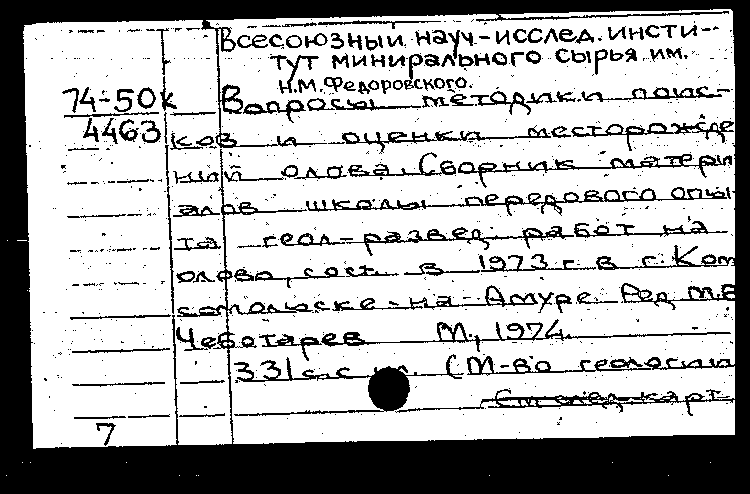 Всесоюзный науч-исслед. инсти-
тут минирального сырья им.
Н.М. Федоровского.
74-50к Вопросы методики поис-
4463 ков и оценки месторожде
ний олова. Сборник матери
алов школы передового опы
та геол-развед. работ на
олово, сост. в 1973 г. в г. Ком
сомольске-на-Амуре. Ред. М.В
Чеботарев М., 1974.
331 с. с (М-во геологии
См след. карт.
7